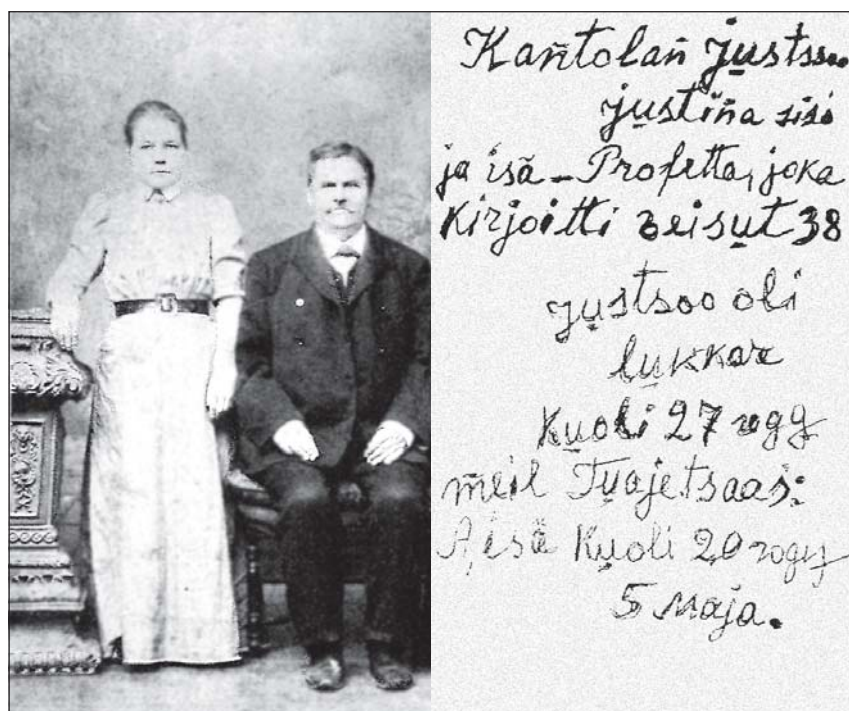 Kañtolañ justsoo
justiña sisi
ja isä – Profetta, joka
Kirjoitti veisut 38
justsoo oli
lukkar
Kuoli 27 году
meil Tuajetsaas:
A, isä Kuoli 20 году
5 мaja.